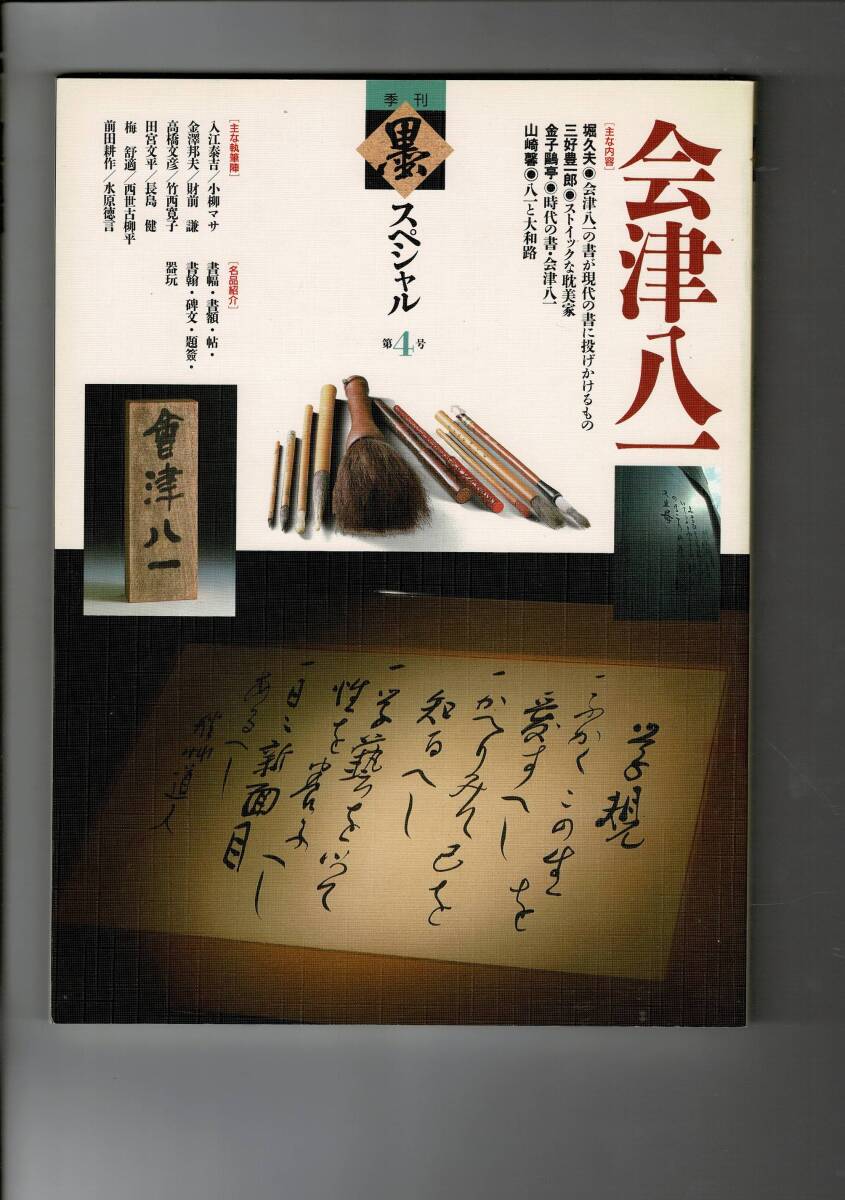 会津八一
[主な内容]
堀久夫●会津八一の書が現代の書に投げかけるもの
三好豊一郎●ストイックな耽美家
金子鷗亭●時代の書・会津八一
山崎馨●八一と大和路
季刊
墨
スペシャル
第4号
[主な執筆陣]
入江泰吉/小柳マサ
金澤邦夫/財前 謙
高橋文彦/竹西寛子
田宮文平/長島 健
梅 舒適/西世古柳平
前田耕作/水原徳言
[名品紹介]
書幅・書額・帖・
書翰・碑文・題簽・
器玩
會津八一
学規
一ふかくこの生を
愛すへし
一かへりみて己を
知るへし
一学藝を以て
性を養ふへし
一日々新面目
あるへし
道人